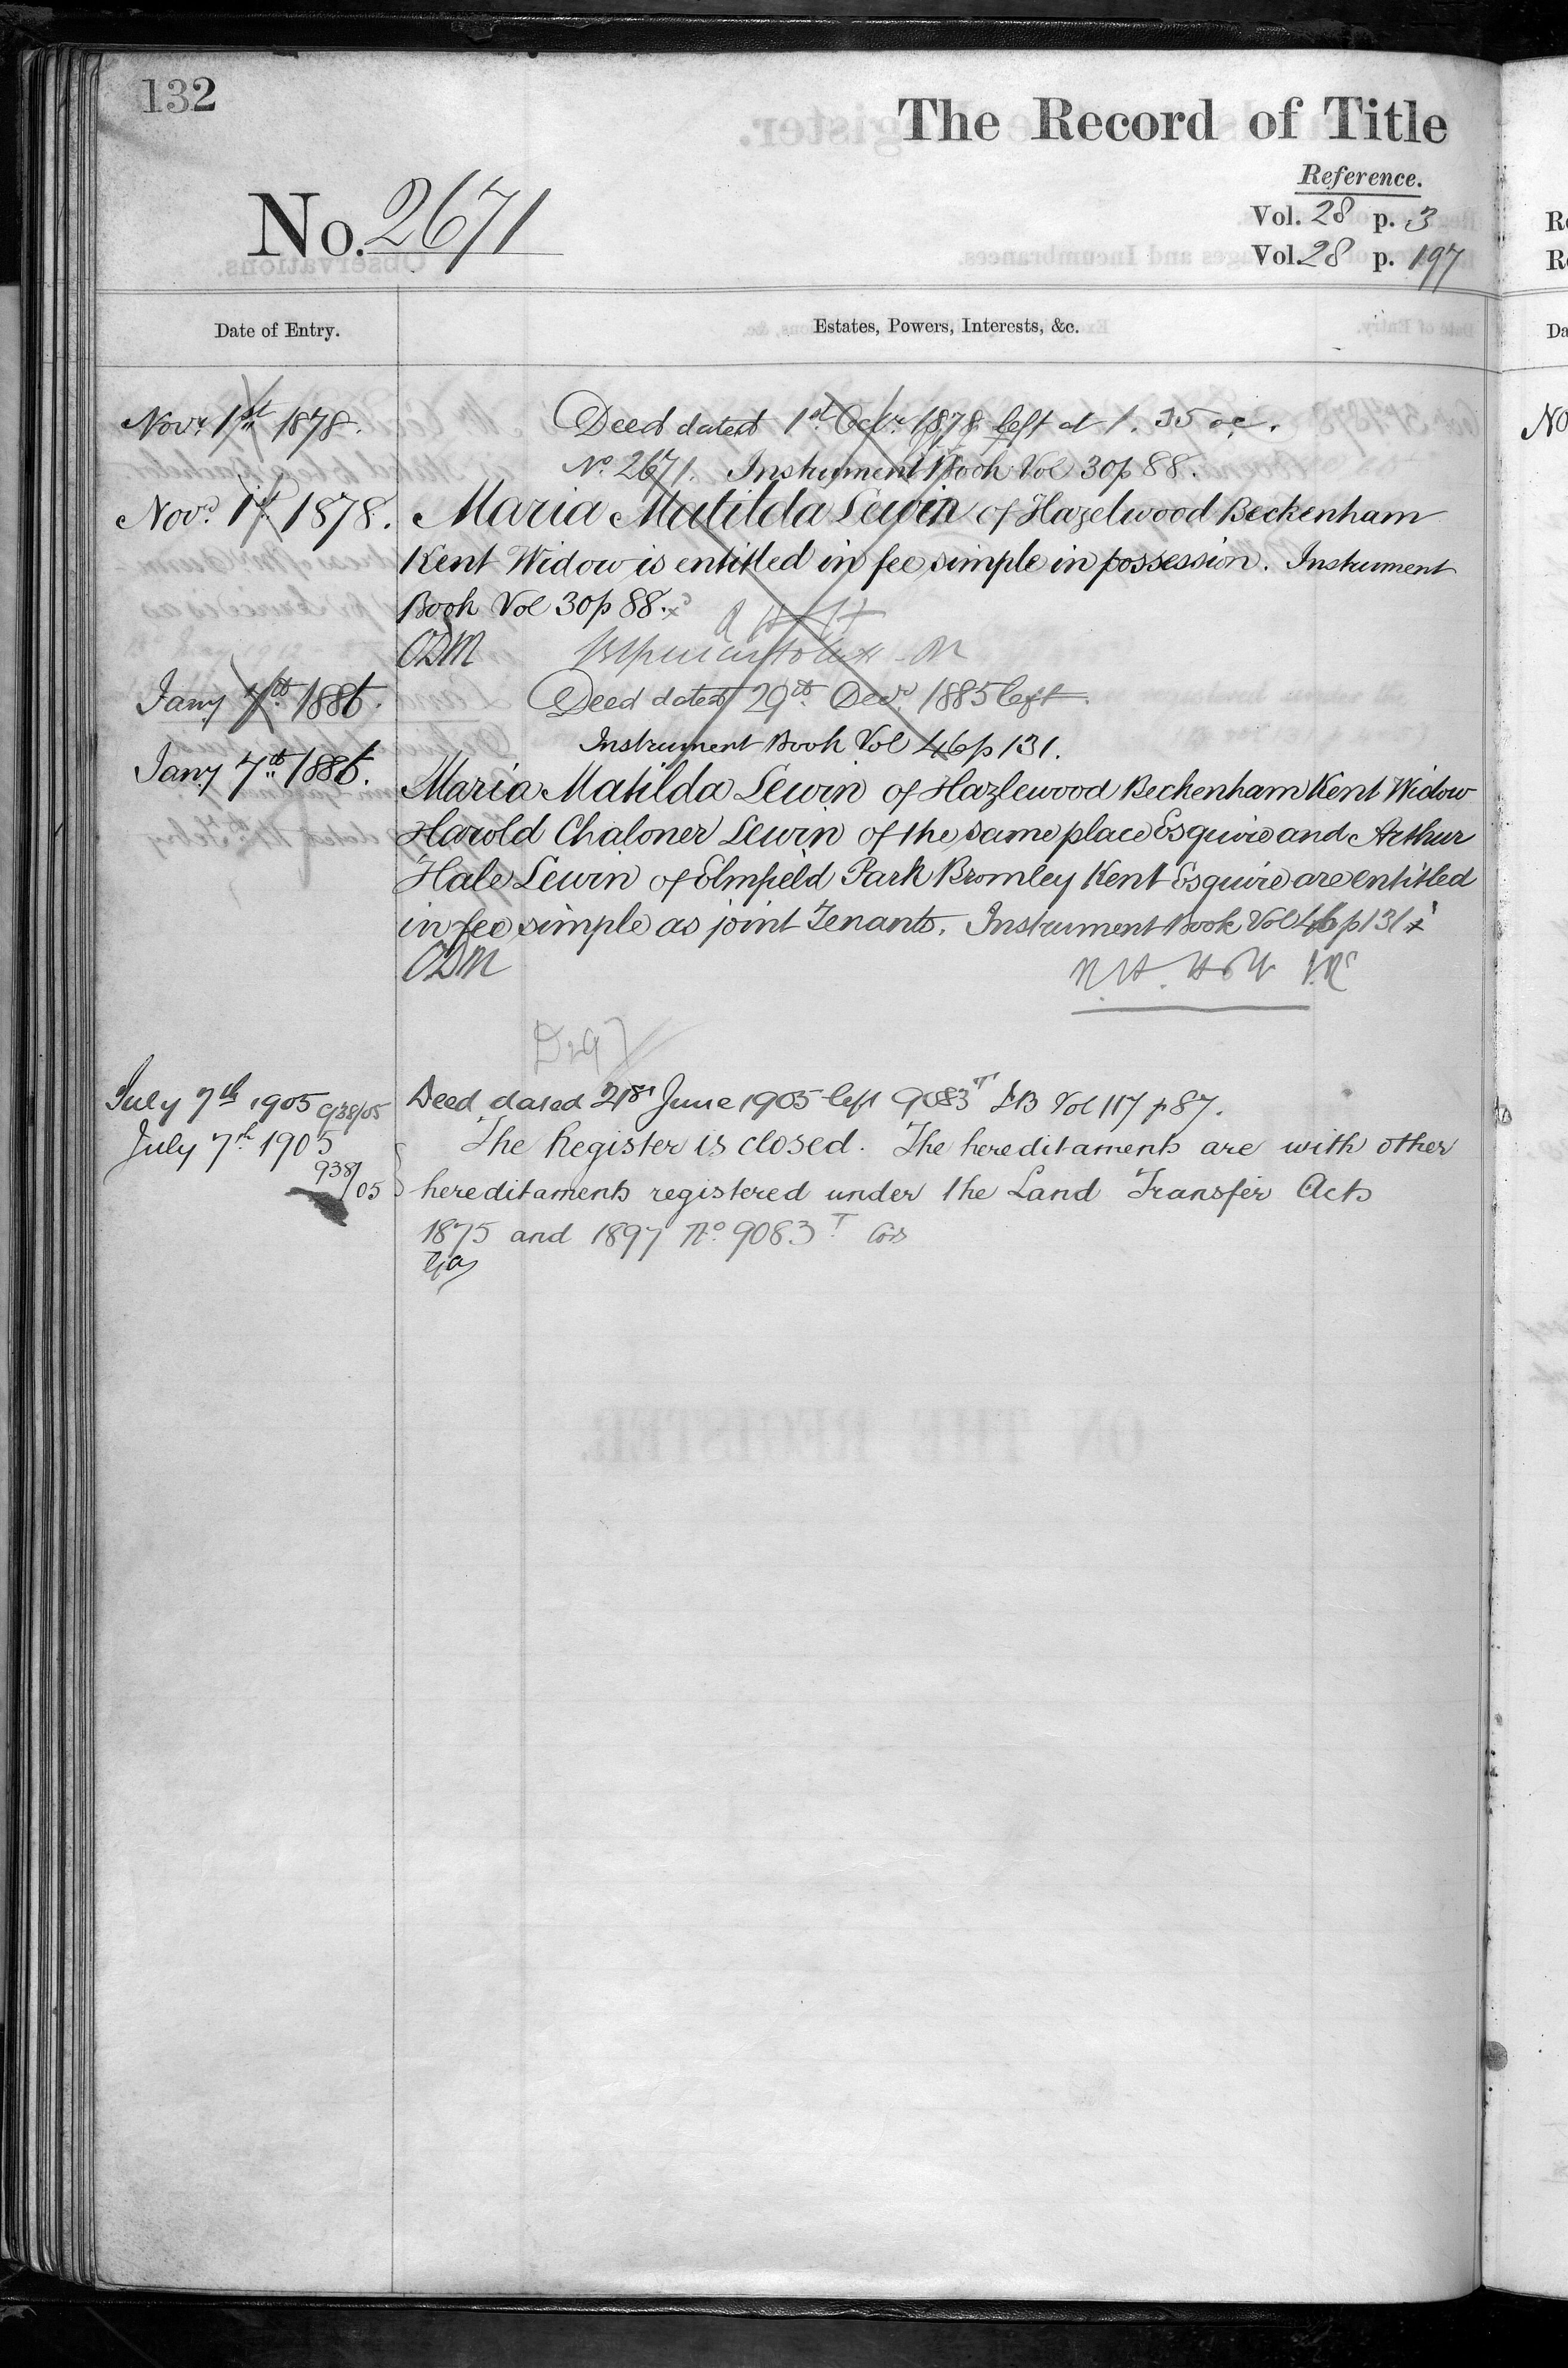 132
The Record of Title
Reference.
No. 2671
Vol. 28 p. 3
Vol. 28 p. 197
Date of Entry.
Estates, Powers, Interests, &c.
Novr. 1st 1878. Deed dated 1st Octr. 1878 left at 1.35 oc.
No. 2671. Instrument Book Vol 30 p 88.
Novr. 1st 1878. Maria Matilda Lewin of Hazelwood Beckenham
Kent Widow is entitled in fee simple in possession. Instrument
Book Vol 30 p 88.
ODM
Jany 7th 1886. Deed dated 29th Decr. 1885 left
Instrument Book Vol 46 p 131.
Jany 7th 1886. Maria Matilda Lewin of Hazlewood Beckenham Kent Widow
Harold Chaloner Lewin of the same place Esquire and Arthur
Hale Lewin of Elmfield Park Bromley Kent Esquire are entitled
in fee simple as joint Tenants. Instrument Book Vol 46 p 131
ODM
July 7th 1905 938/05 Deed dated 21st June 1905 left 9083T IB Vol 117 p 87.
July 7th 1905 The Register is closed. The hereditaments are with other
938/05 hereditaments registered under the Land Transfer Acts
1875 and 1897 No 9083T